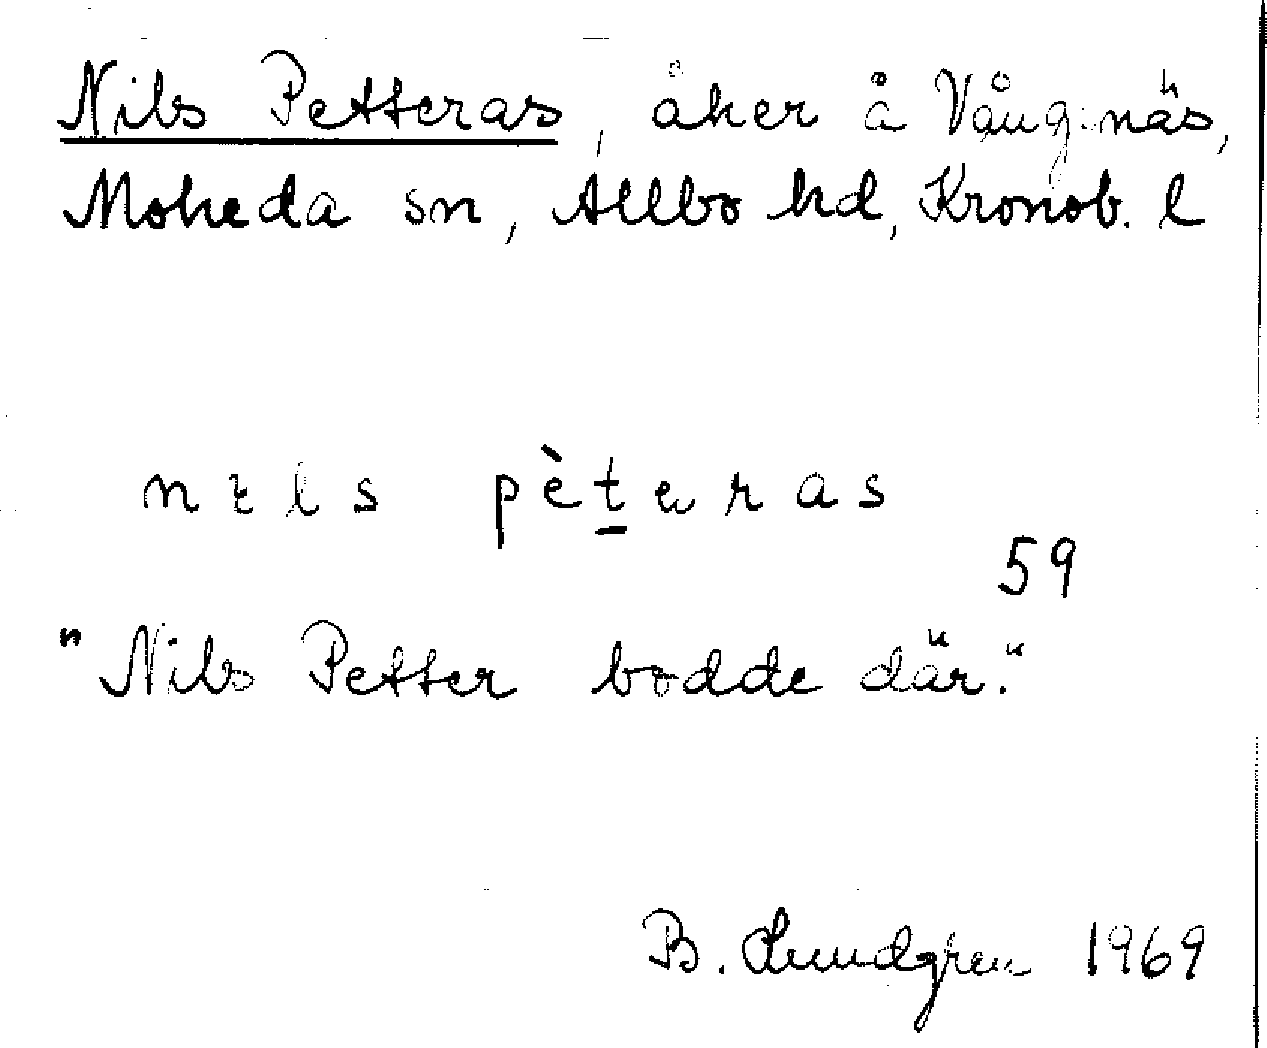 Nils Petteras, åker å Våugnäs,
Moheda sn, Allbo hd, Kronob. l
nıls pèt̲eras
59
"Nils Petter bodde där."
B. Lundgren 1969